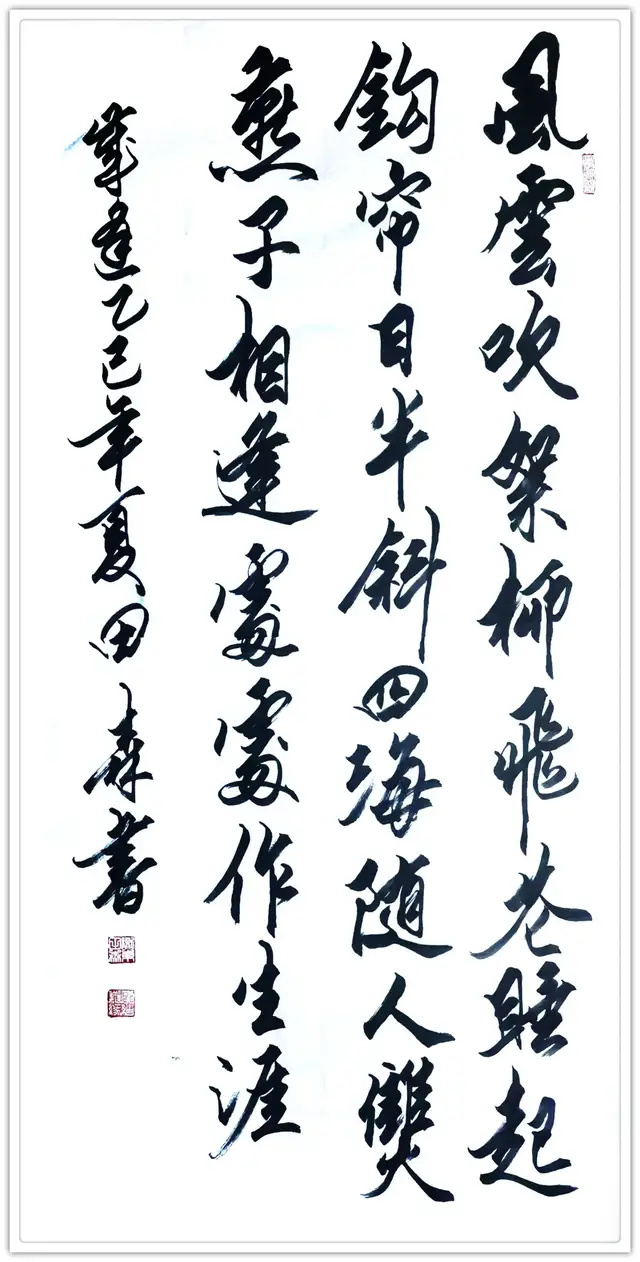 風雲吹絮柳飛花睡起
鈎帘日半斜四海随人雙
燕子相逢處處作生涯
歲逢乙巳年夏田森書